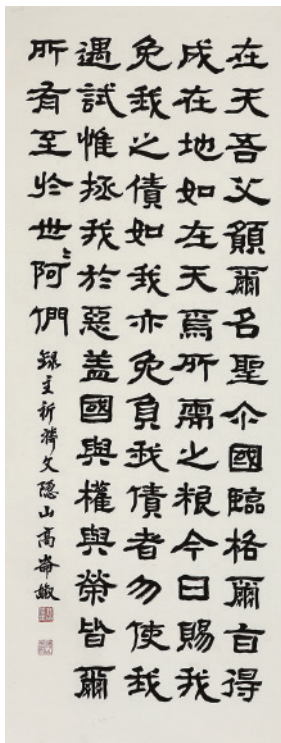 在天吾父願爾名聖尒國臨格爾旨得
成在地如在天焉所需之粮今日賜我
免我之債如我亦免負我債者勿使我
遇試惟拯我於惡盖國與權與榮皆爾
所有至於世々阿們
録主祈禱文隱山高崙